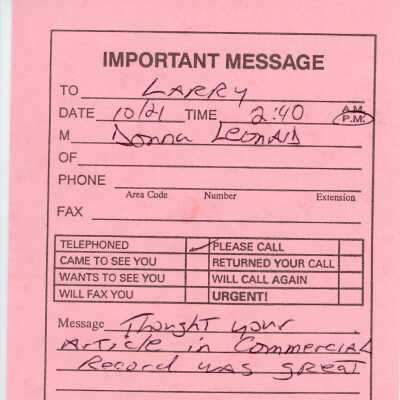 IMPORTANT MESSAGE
TO LARRY
DATE 10/21 TIME 2:40 A.M. P.M.
M Donna Leonard
OF
PHONE
Area Code Number Extension
FAX
TELEPHONED ✓ PLEASE CALL
CAME TO SEE YOU RETURNED YOUR CALL
WANTS TO SEE YOU WILL CALL AGAIN
WILL FAX YOU URGENT!
Message Thought your
Article in Commercial
Record was great